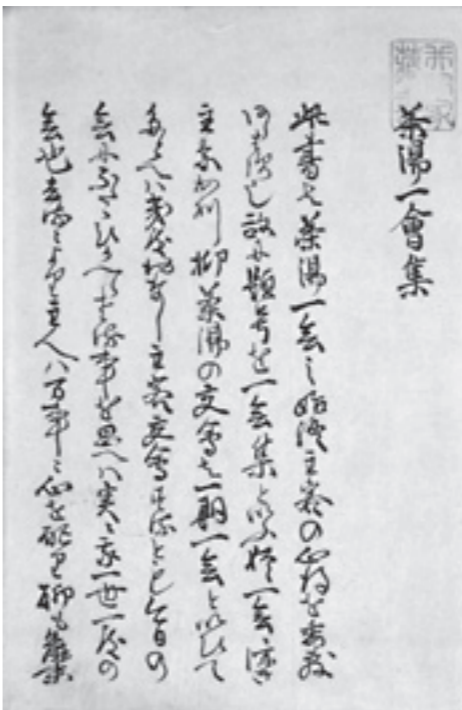 茶湯一會集
此書は茶湯一会之始終主客の心得を委敷
あらはす也故に題号を一会集といふ猶一会ニ深き
主意あり抑茶湯の交会は一期一会といひて
たとへハ幾度おなし主客交会するとも今日の
会にふたゝひかへらさる事を思へハ実ニ我一世一度の
会也去るニより主人ハ万事ニ心を配り聊も麁